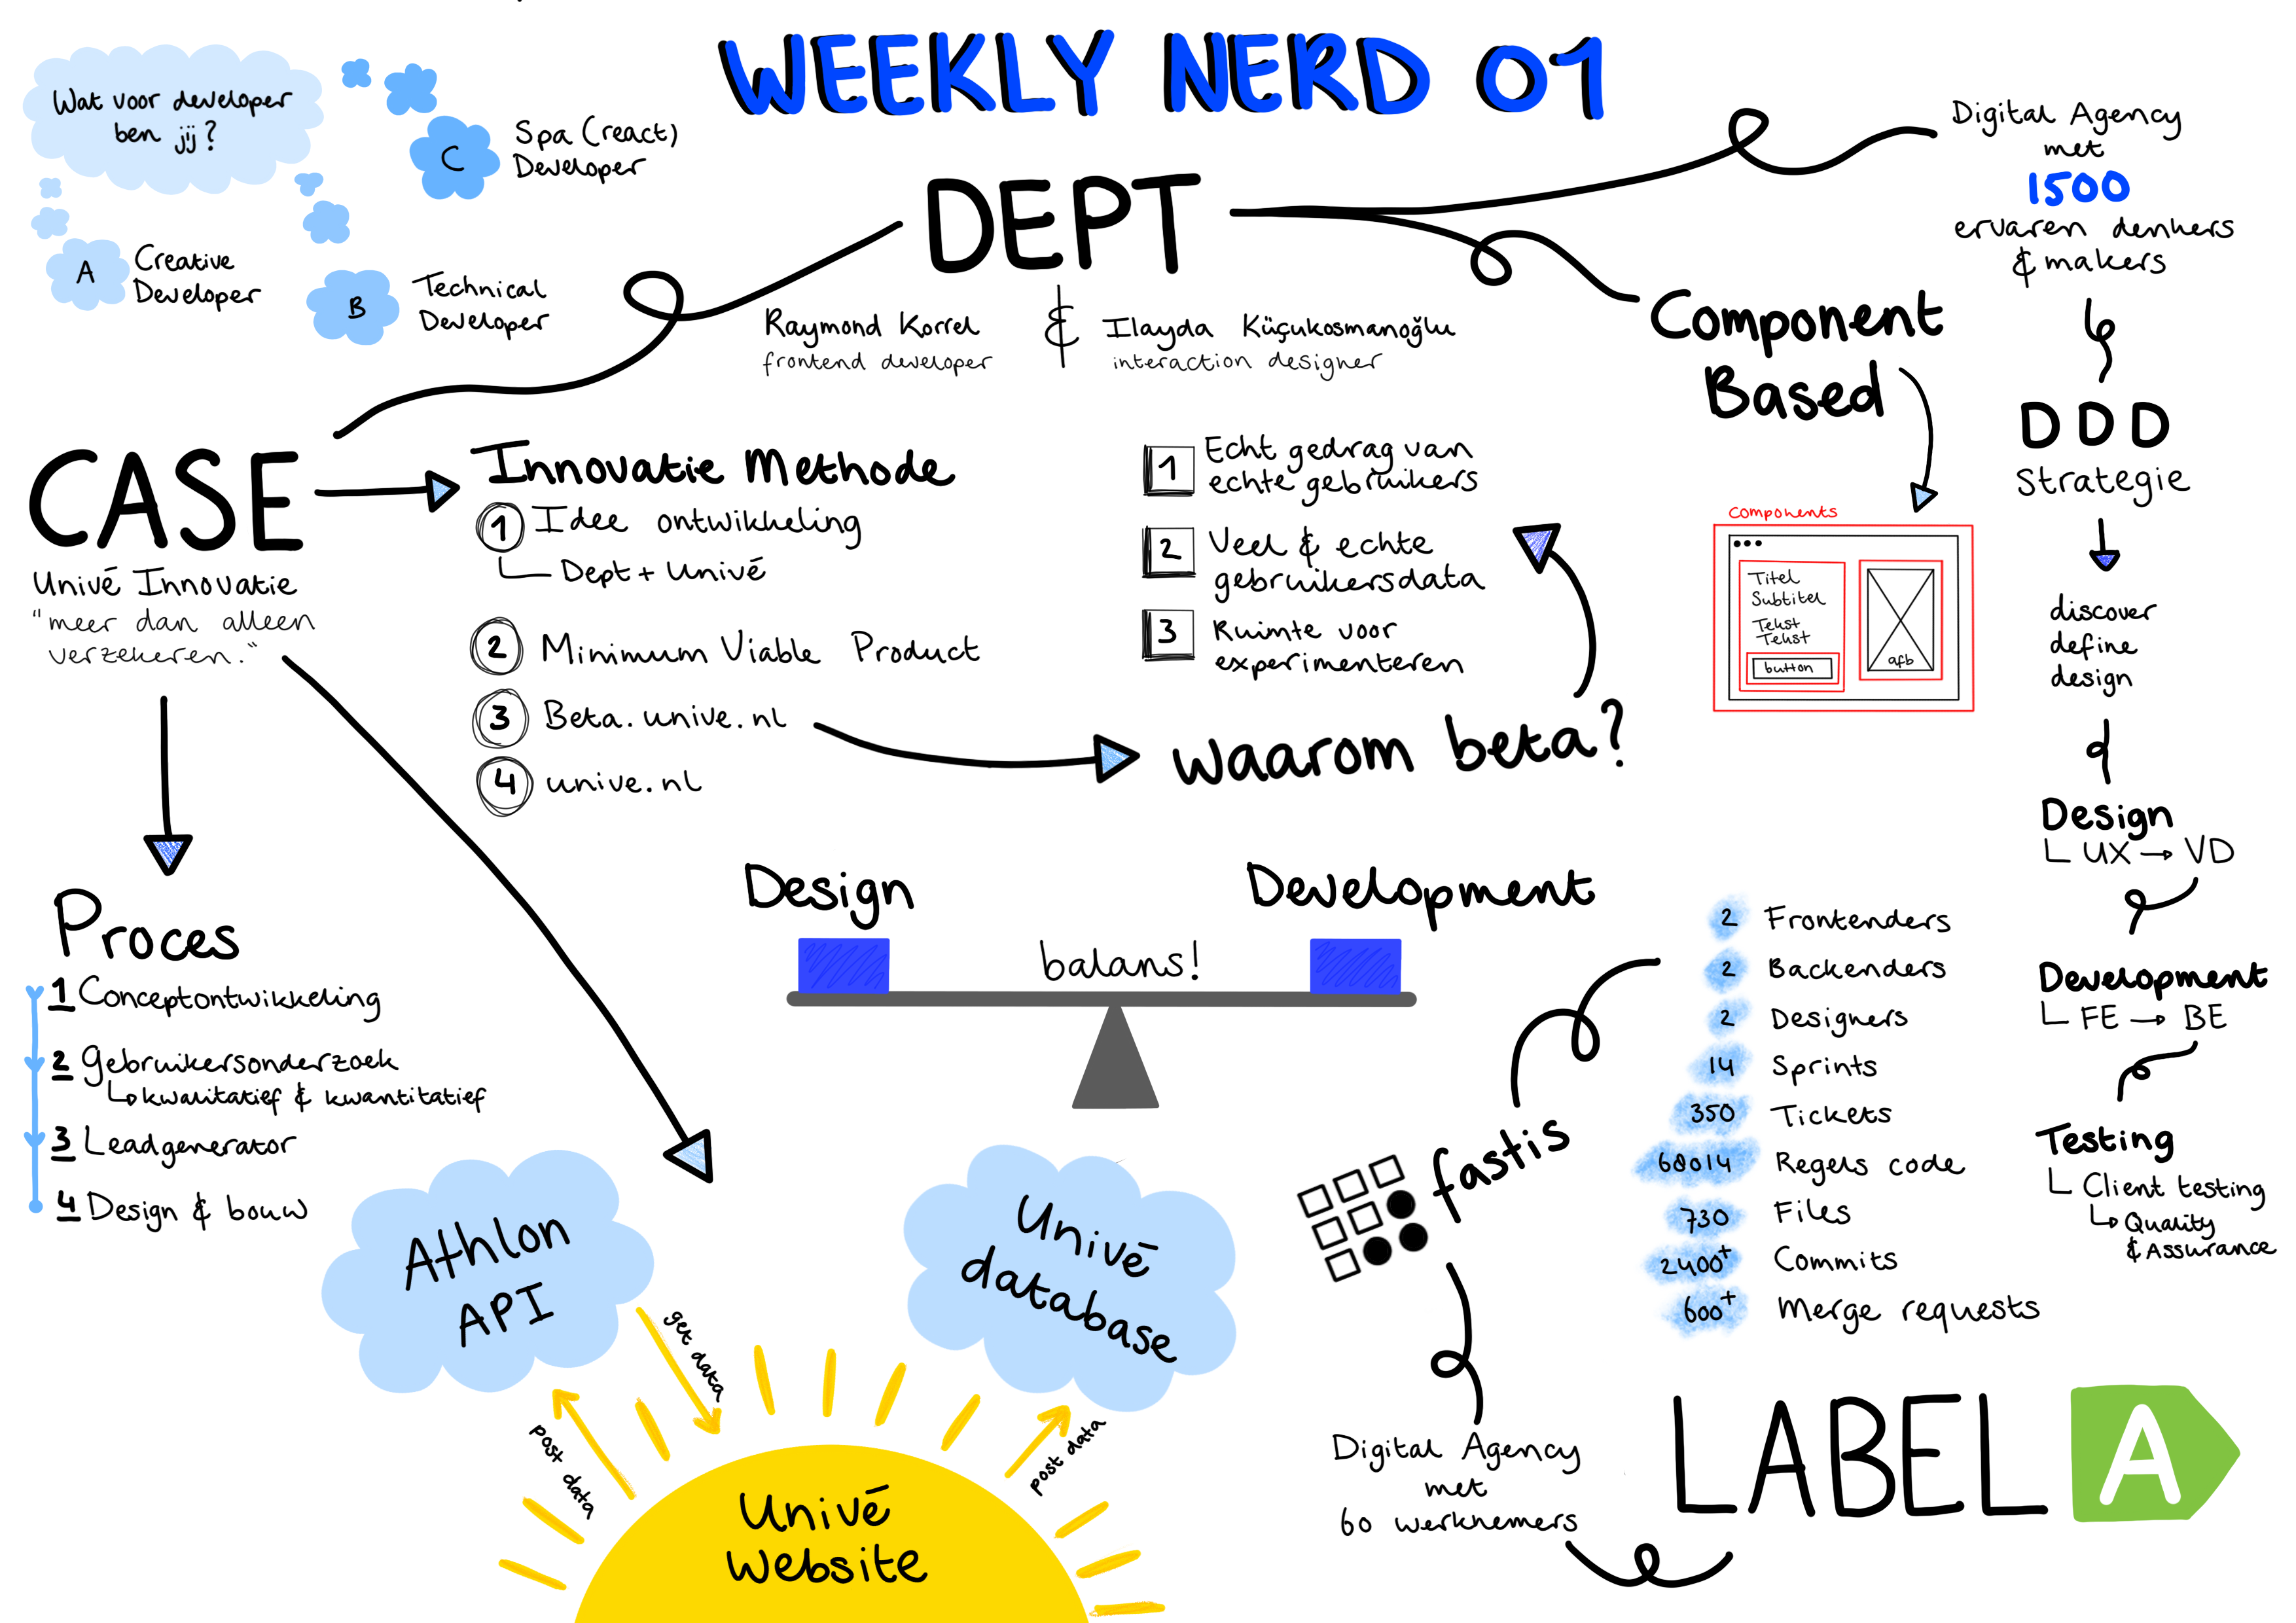 WEEKLY NERD 01
Wat voor developer
ben jij?
A
Creative
Developer
B
Technical
Developer
C
Spa (react)
Developer
DEPT
Raymond Korrel
frontend developer
&
Ilayda Küçukosmanoğlu
interaction designer
Digital Agency
met
1500
ervaren denkers
& makers
DDD
Strategie
discover
define
design
Design
UX → VD
Development
FE → BE
Testing
Client testing
Quality
& Assurance
Component
Based
components
Titel
Subtitel
Tekst
Tekst
button
afb
CASE
Univé Innovatie
"meer dan alleen
verzekeren."
Innovatie Methode
1 Idee ontwikkeling
Dept + Univé
2 Minimum Viable Product
3 Beta.unive.nl
4 unive.nl
waarom beta?
1 Echt gedrag van
echte gebruikers
2 Veel & echte
gebruikersdata
3 Ruimte voor
experimenteren
Proces
1 Conceptontwikkeling
2 Gebruikersonderzoek
kwalitatief & kwantitatief
3 Leadgenerator
4 Design & bouw
Design
Development
balans!
Athlon
API
Univé
database
get data
post data
post data
Univé
Website
fastis
2 Frontenders
2 Backenders
2 Designers
14 Sprints
350 Tickets
68014 Regels code
730 Files
2400+ Commits
600+ Merge requests
Digital Agency
met
60 werknemers
LABEL A